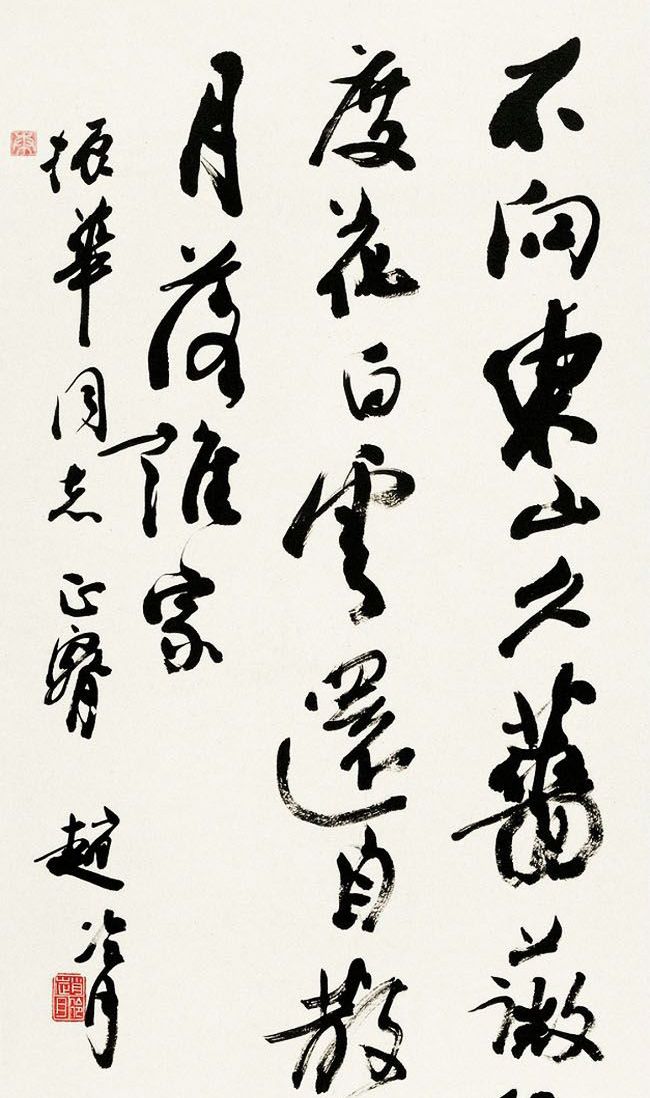 不向東山久薔薇
度花白雲還自散
月落誰家
振華同志正 趙冷月